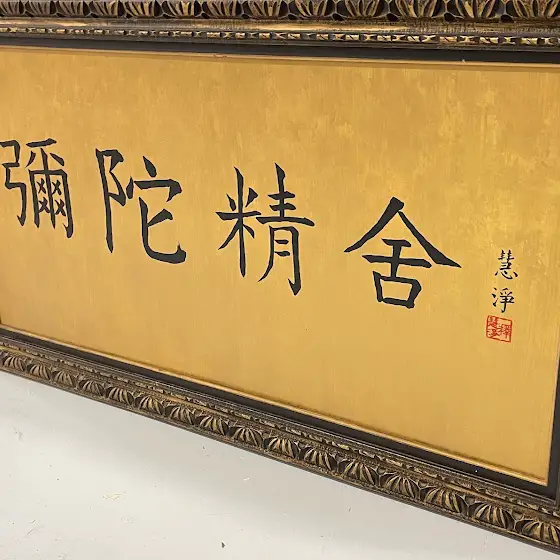 彌陀精舍
慧淨